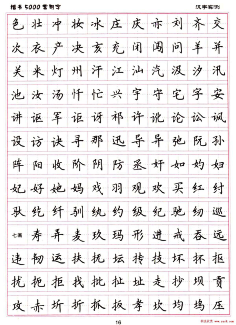 楷书5000常用字 汉字实例
色壮冲妆冰庄庆亦刘齐交
次衣产决亥充闭闯问羊并
关米灯州汗江汕汽汲汐汛
池汝汤忏忙兴宇守宅字安
讲讴军讵讶祁许讹论讼讽
设访诀寻那迅导异弛阮孙
阵阳收阶阴防丞奸如妁妇
妃好她妈戏羽观欢买红纣
驮纥纤驯纨约级纪驰纫巡
七画 寿弄麦玖玛形进戒吞远
违韧运扶抚坛技坏抔拒
扰扼拒找批址走抄坝贡
攻赤圻折抓扳孝坎均坞
16